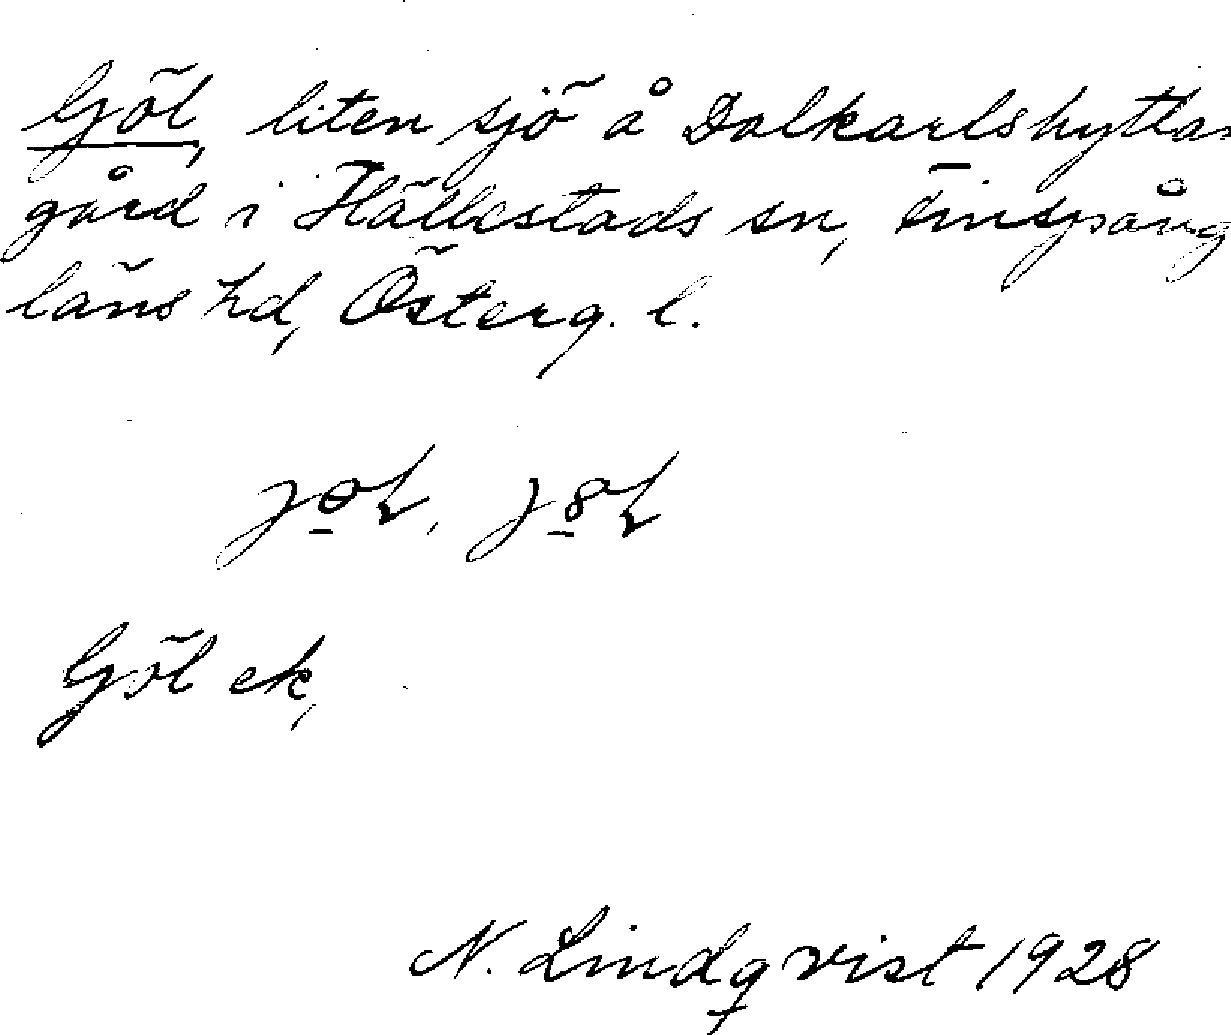 Göl, liten sjö å Dalkarlshyttan
gård i Hällestads sn, Finspång
läns hd, Österg. l.
Göl ek,
N. Lindqvist 1928